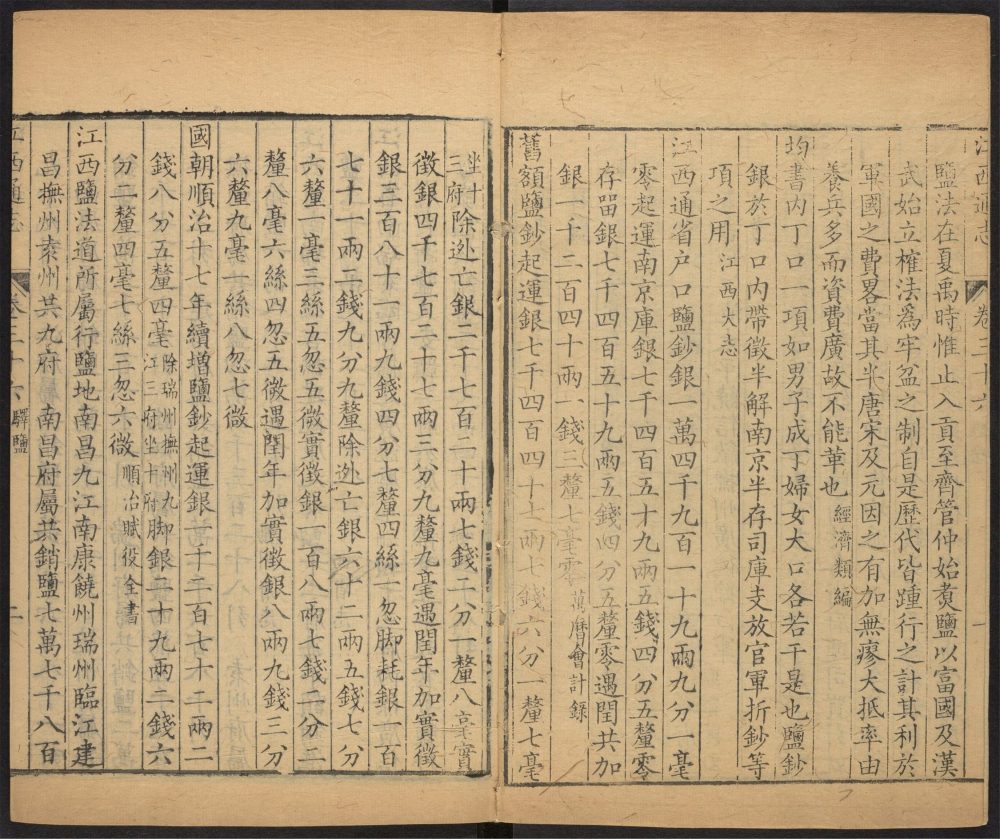 江西通志 卷三十六 一
鹽法在夏禹時惟止入貢至齊管仲始煮鹽以富國及漢
武始立榷法為牢盆之制自是歷代皆踵行之計其利於
軍國之費畧當其半唐宋及元因之有加無瘳大抵率由
養兵多而資費廣故不能革也 經濟類編
均書內丁口一項如男子成丁婦女大口各若干是也鹽鈔
銀於丁口內帶徵半解南京半存司庫支放官軍折鈔等
項之用 江西大志
江西通省户口鹽鈔銀一萬四千九百一十九兩九分一毫
零起運南京庫銀七千四百五十九兩五錢四分五釐零
存留銀七千四百五十九兩五錢四分五釐零遇閏共加
銀一千二百四十兩一錢三釐七毫零 萬曆會計錄
舊額鹽鈔起運銀七千四百四十七兩七錢六分一釐七毫
坐十三府除迯亡銀二千七百二十兩七錢二分一釐八毫實
徵銀四千七百二十七兩三分九釐九毫遇閏年加實徵
銀三百八十一兩九錢四分七釐四絲一忽脚耗銀一百
七十一兩二錢九分九釐除迯亡銀六十二兩五錢七分
六釐一毫三絲五忽五微實徵銀一百八兩七錢二分二
釐八毫六絲四忽五微遇閏年加實徵銀八兩九錢三分
六釐九毫一絲八忽七微
國朝順治十七年續增鹽鈔起運銀一千二百七十二兩二
錢八分五釐四毫 除瑞州撫州九江三府坐十府 脚銀二十九兩二錢六
分二釐四毫七絲三忽六微 順治賦役全書
江西鹽法道所屬行鹽地南昌九江南康饒州瑞州臨江建
昌撫州袁州共九府 南昌府屬共銷鹽七萬七千八百
江西通志 卷三十六 驛鹽 二